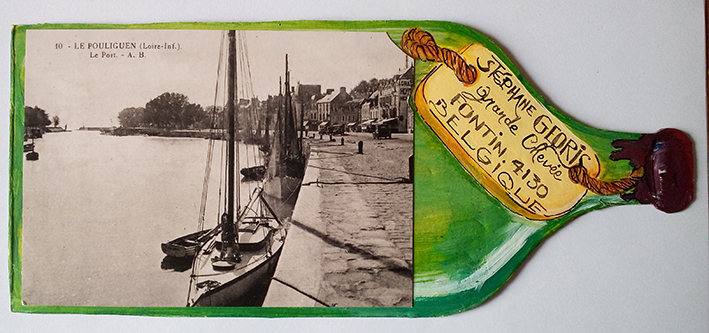 10 - LE POULIGUEN (Loire-Inf.).
Le Port. - A. B.
STÉPHANE GEORIS
Grande Chevée
FONTIN 4130
BELGIQUE